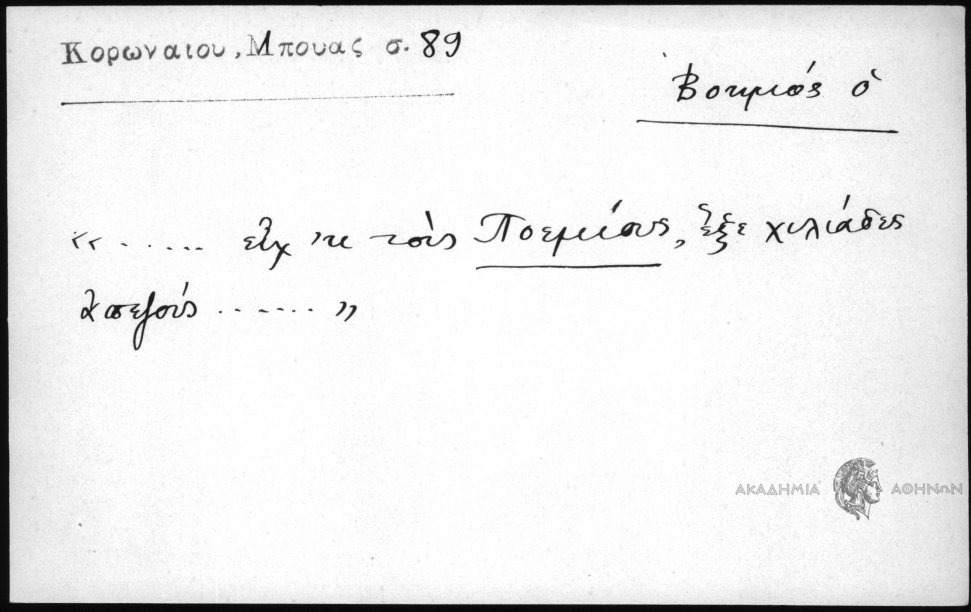 Κορωναιου, Μπουας σ. 89
Βοεμιός ὁ
«...... εἶχ 'τε τοὺς Ποεμίους, ἕξε χιλιάδες
ἀπεζούς ....... »
ΑΚΑΔΗΜΙΑ ΑΘΗΝΩΝ